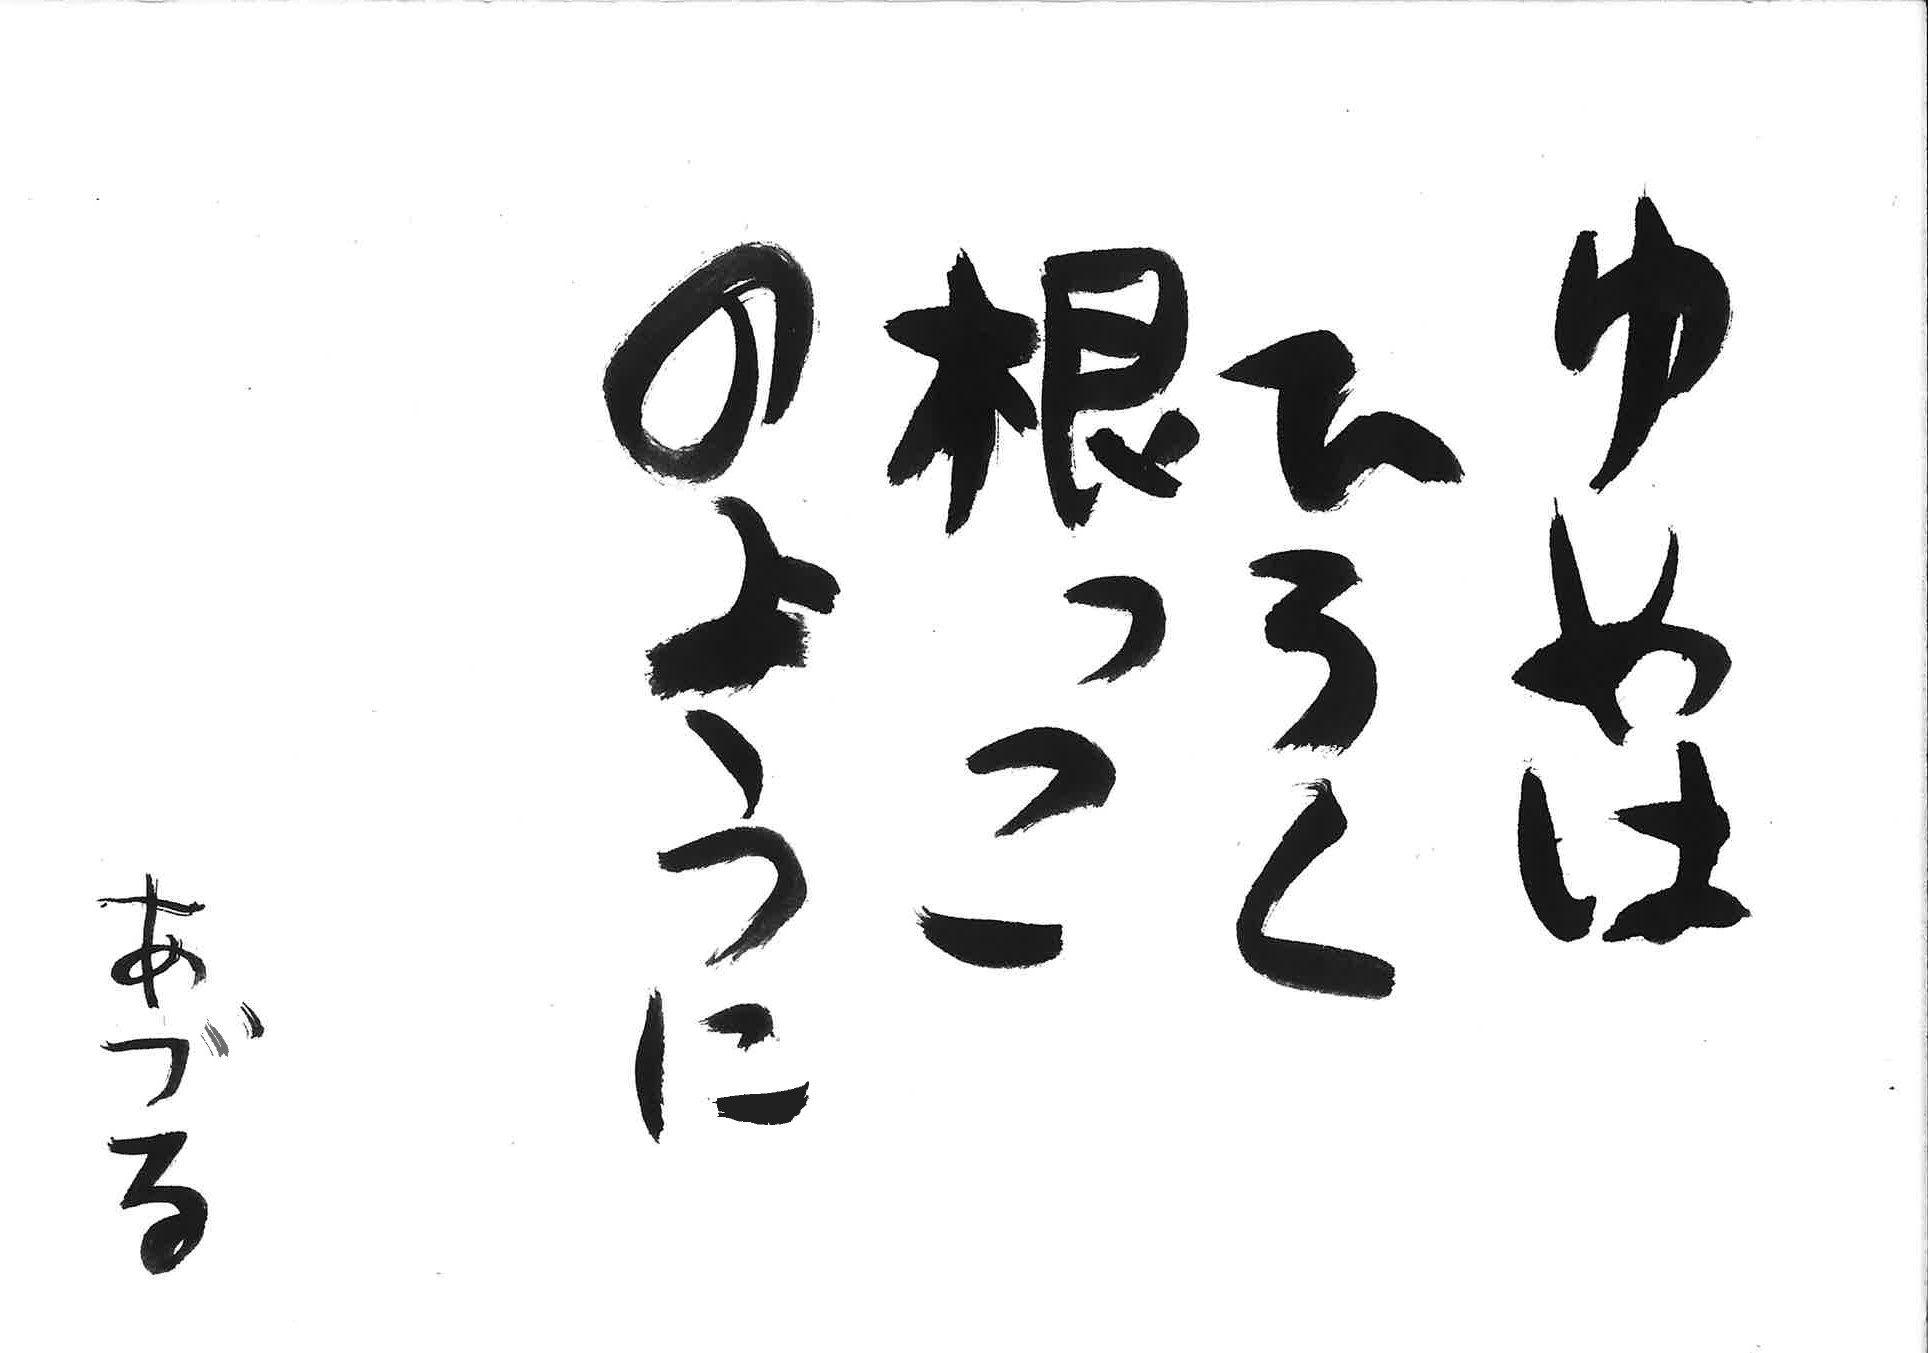 ゆめは
ひろく
根っこ
のように
あづる